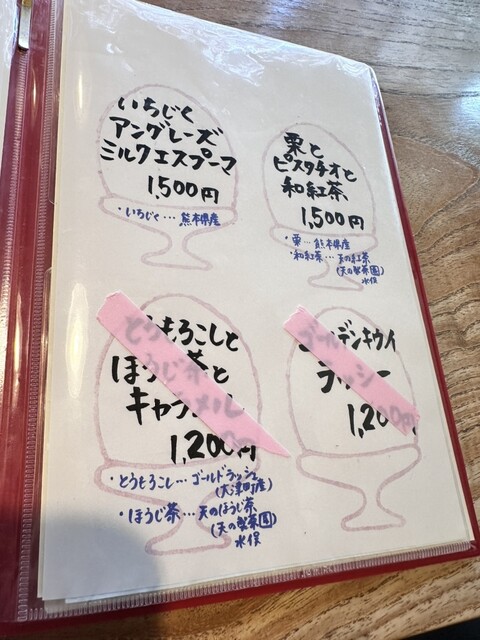 いちじく
アングレーズ
ミルクエスプーマ
1,500円
・いちじく…熊本県産
栗と
ピスタチオと
和紅茶
1,500円
・栗…熊本県産
・和紅茶…天の紅茶
(天の製茶園)
水俣
とうもろこしと
ほうじ茶と
キャラメル
1,200円
・とうもろこし…ゴールドラッシュ
(大津町産)
・ほうじ茶…天のほうじ茶
(天の製茶園)
水俣
ゴールデンキウイ
ラッシー
1,200円